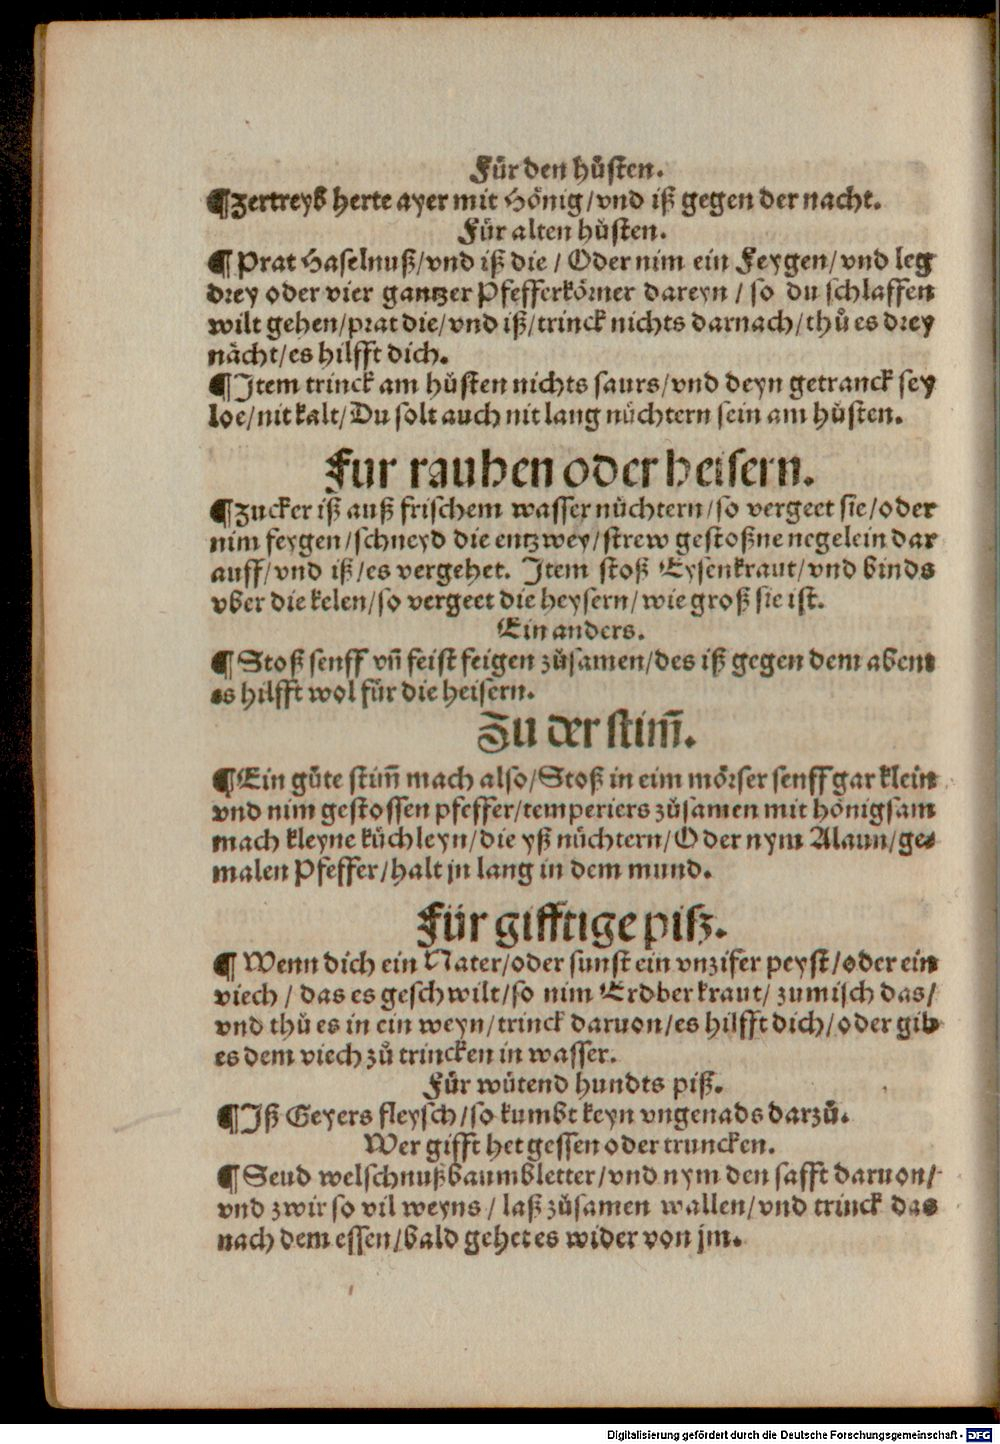 Für den hůsten.
¶Zertreyb herte ayer mit Hönig/vnd iß gegen der nacht.
Für alten hůsten.
¶Prat Haselnuß/vnd iß die/Oder nim ein Feygen/vnd leg
drey oder vier gantzer Pfefferkörner dareyn/so du schlaffen
wilt gehen/prat die/vnd iß/trinck nichts darnach/thů es drey
nächt/es hilfft dich.
¶Item trinck am hůsten nichts saurs/vnd deyn getranck sey
loe/nit kalt/Du solt auch nit lang nüchtern sein am hůsten.
Fur rauhen oder heisern.
¶Zucker iß auß frischem wasser nüchtern/so vergeet sie/oder
nim feygen/schneyd die entzwey/strew gestoßne negelein dar
auff/vnd iß/es vergehet. Item stoß Eysenkraut/vnd binds
vber die kelen/so vergeet die heysern/wie groß sie ist.
Ein anders.
¶Stoß senff vñ feist feigen zůsamen/des iß gegen dem abent
es hilfft wol für die heisern.
Zu der stim̃.
¶Ein gůte stim̃ mach also/Stoß in eim mörser senff gar klein
vnd nim gestossen pfeffer/temperiers zůsamen mit hönigsam
mach kleyne küchleyn/die yß nüchtern/Oder nym Alaun/ge-
malen Pfeffer/halt jn lang in dem mund.
Für gifftige piß.
¶Wenn dich ein Nater/oder sunst ein vnzifer peyst/oder ein
viech/das es geschwilt/so nim Erdberkraut/zumisch das/
vnd thů es in ein weyn/trinck daruon/es hilfft dich/oder gib
es dem viech zů trincken in wasser.
Für wütend hundts piß.
¶Iß Geyers fleysch/so kumbt keyn vngenads darzů.
Wer gifft het gessen oder truncken.
¶Seud welschnußbaumbletter/vnd nym den safft daruon/
vnd zwir so vil weyns/laß zůsamen wallen/vnd trinck das
nach dem essen/bald gehet es wider von jm.
Digitalisierung gefördert durch die Deutsche Forschungsgemeinschaft - DFG